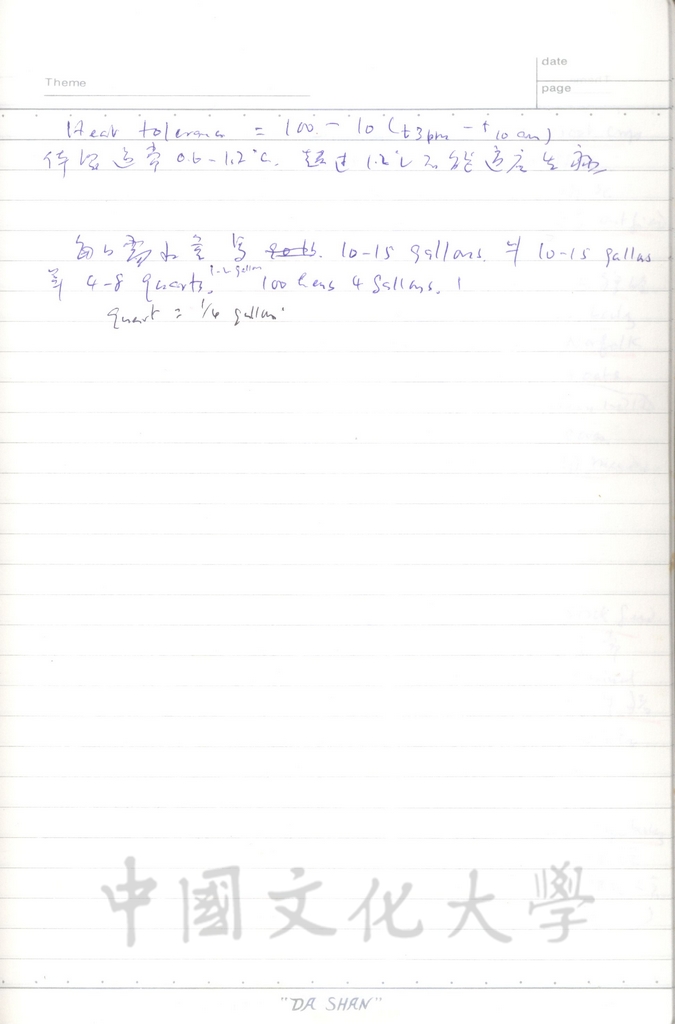 date
Theme
page
Heat tolerance = 100 - 10 (t3pm - t10am)
体温通常 0.6-1.2°C. 超过 1.2°C 不能适应生
每日需水量 10-15 gallons. 牛 10-15 gallons
4-8 quarts. 1-2 gallon 100 hens 4 gallons.
quart = 1/4 gallon.
中國文化大學
"DA SHAN"